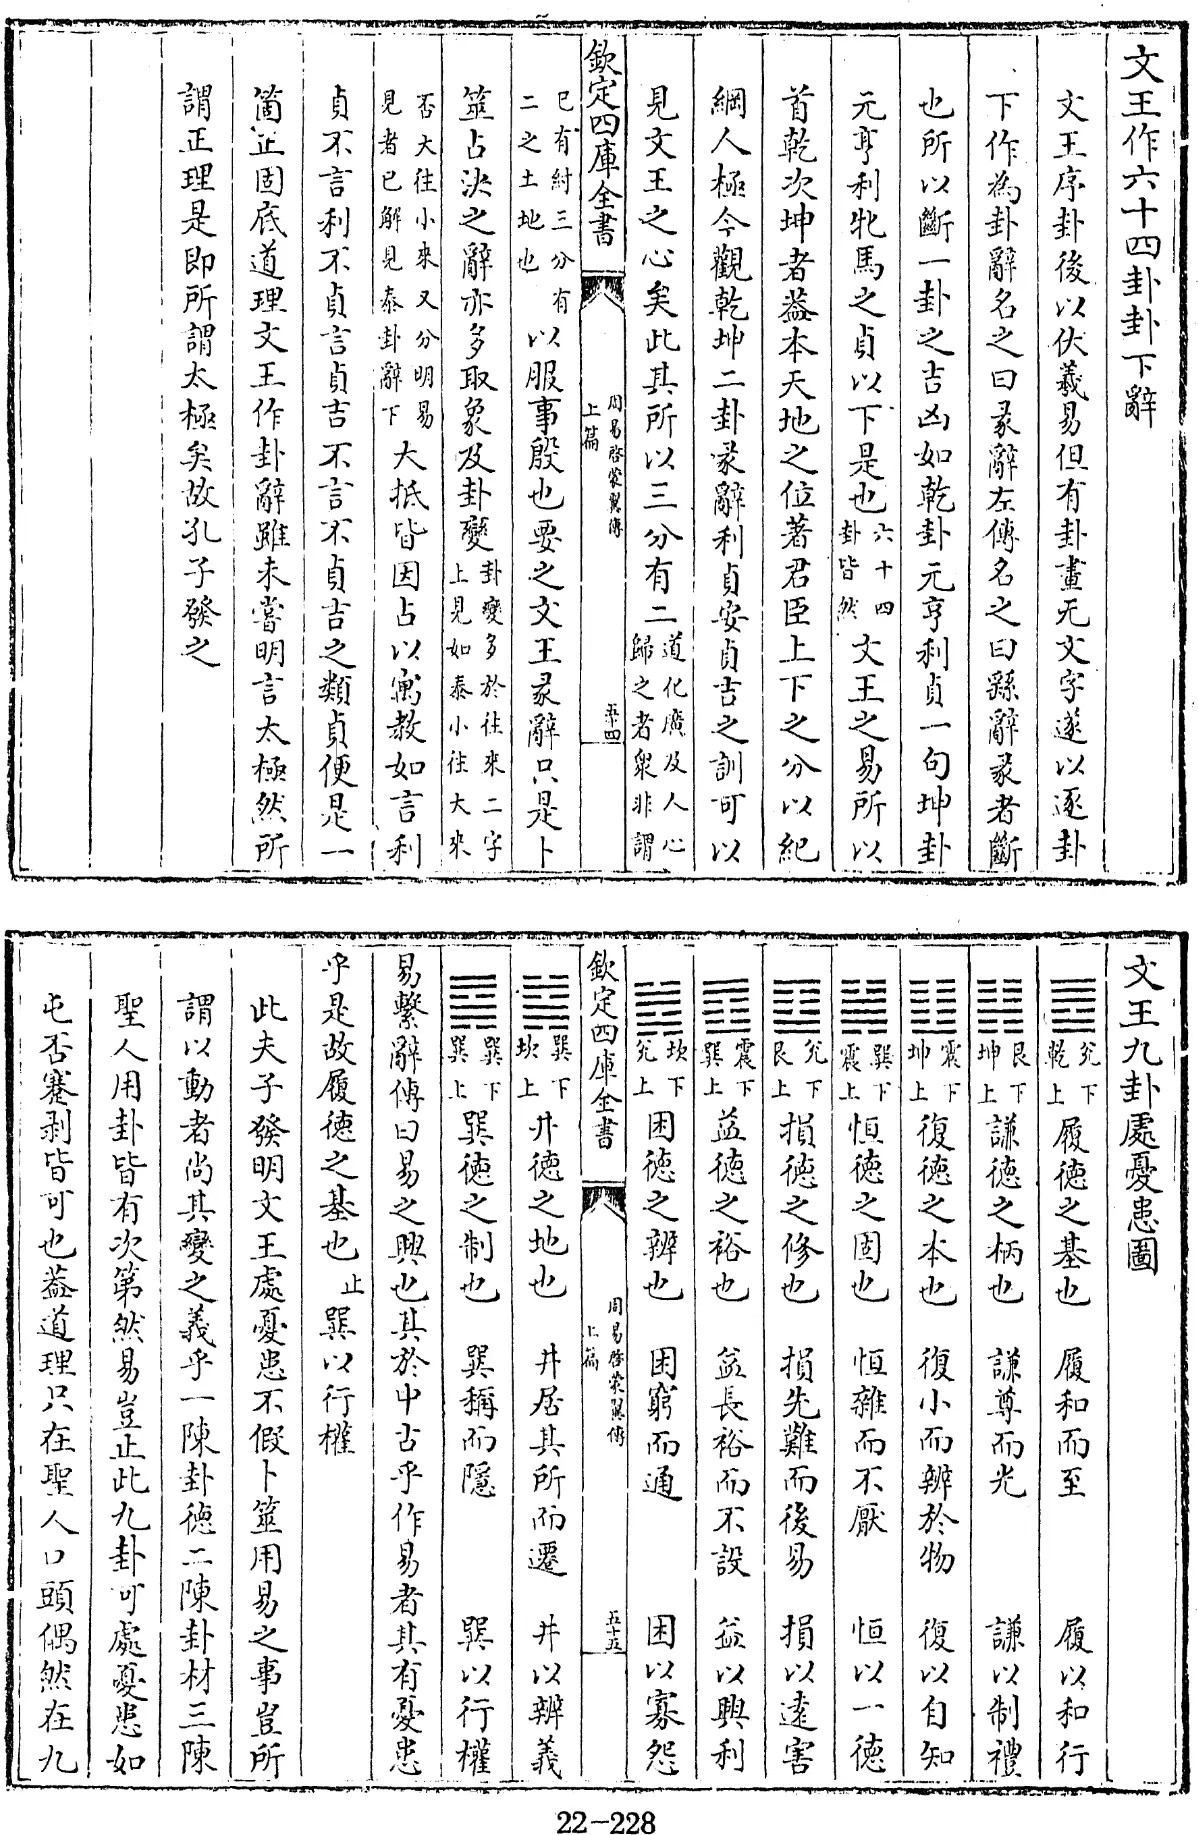 文王作六十四卦卦下辭
文王序卦後以伏羲易但有卦畫无文字遂以逐卦
下作為卦辭名之曰彖辭左傳名之曰繇辭彖者斷
也所以斷一卦之吉凶如乾卦元亨利貞一句坤卦
元亨利牝馬之貞以下是也六十四卦皆然文王之易所以
首乾次坤者葢本天地之位著君臣上下之分以紀
綱人極今觀乾坤二卦彖辭利貞安貞吉之訓可以
見文王之心矣此其所以三分有二道化廣及人心歸之者衆非謂
欽定四庫全書 周易啓蒙翼傳上篇 五十四
已有紂三分有二之土地也以服事殷也要之文王彖辭只是卜
筮占決之辭亦多取象及卦變卦變多於往來二字上見如泰小往大來
否大往小來又分明易見者已解見泰卦辭下大抵皆因占以寓教如言利
貞不言利不貞言貞吉不言不貞吉之類貞便是一
箇正固底道理文王作卦辭雖未嘗明言太極然所
謂正理是即所謂太極矣故孔子發之
文王九卦處憂患圖
䷉兊下乾上履德之基也 履和而至 履以和行
䷎艮下坤上謙德之柄也 謙尊而光 謙以制禮
䷗震下坤上復德之本也 復小而辨於物 復以自知
䷟巽下震上恒德之固也 恒雜而不厭 恒以一德
䷨兊下艮上損德之修也 損先難而後易 損以遠害
䷩震下巽上益德之裕也 益長裕而不設 益以興利
䷮坎下兊上困德之辨也 困窮而通 困以寡怨
欽定四庫全書 周易啓蒙翼傳上篇 五十五
䷯巽下坎上井德之地也 井居其所而遷 井以辨義
䷸巽下巽上巽德之制也 巽稱而隱 巽以行權
易繫辭傳曰易之興也其於中古乎作易者其有憂患
乎是故履德之基也止巽以行權
此夫子發明文王處憂患不假卜筮用易之事豈所
謂以動者尚其變之義乎一陳卦德二陳卦材三陳
聖人用卦皆有次第然易豈止此九卦可處憂患如
屯否蹇剥皆可也葢道理只在聖人口頭偶然在九
22-228